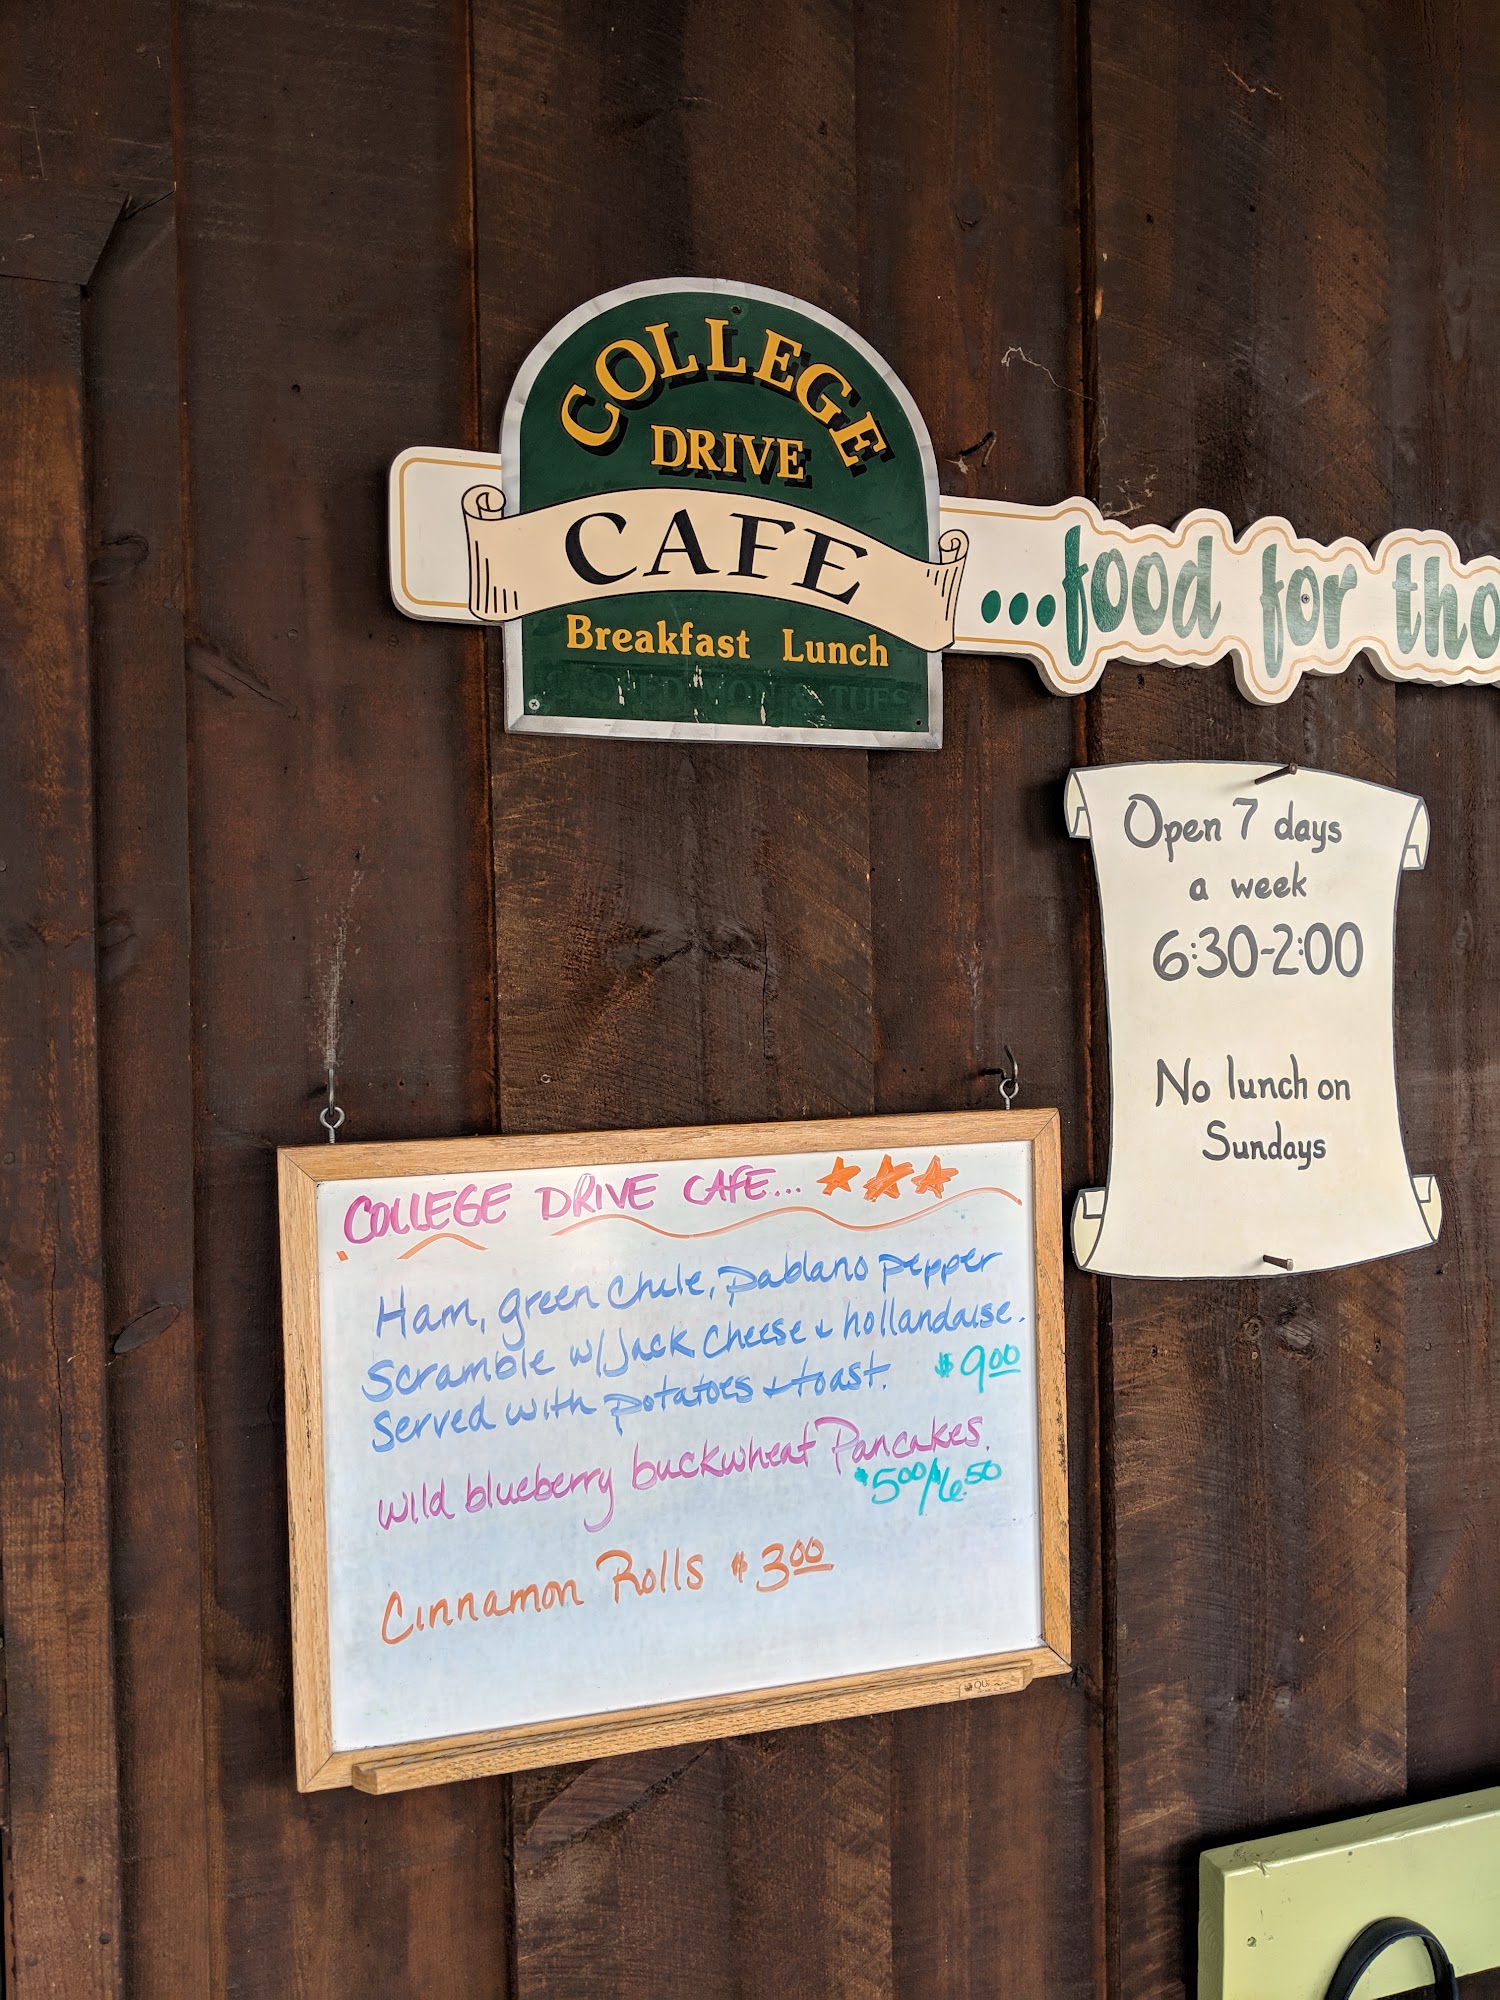 COLLEGE
DRIVE
CAFE
Breakfast Lunch
CLOSED MON & TUES
...food for tho
Open 7 days
a week
6:30-2:00
No lunch on
Sundays
COLLEGE DRIVE CAFE...
Ham, green chile, pablano pepper
scramble w/Jack cheese & hollandaise.
Served with potatoes & toast. $9.00
wild blueberry buckwheat Pancakes.
$5.00/$6.50
Cinnamon Rolls $3.00